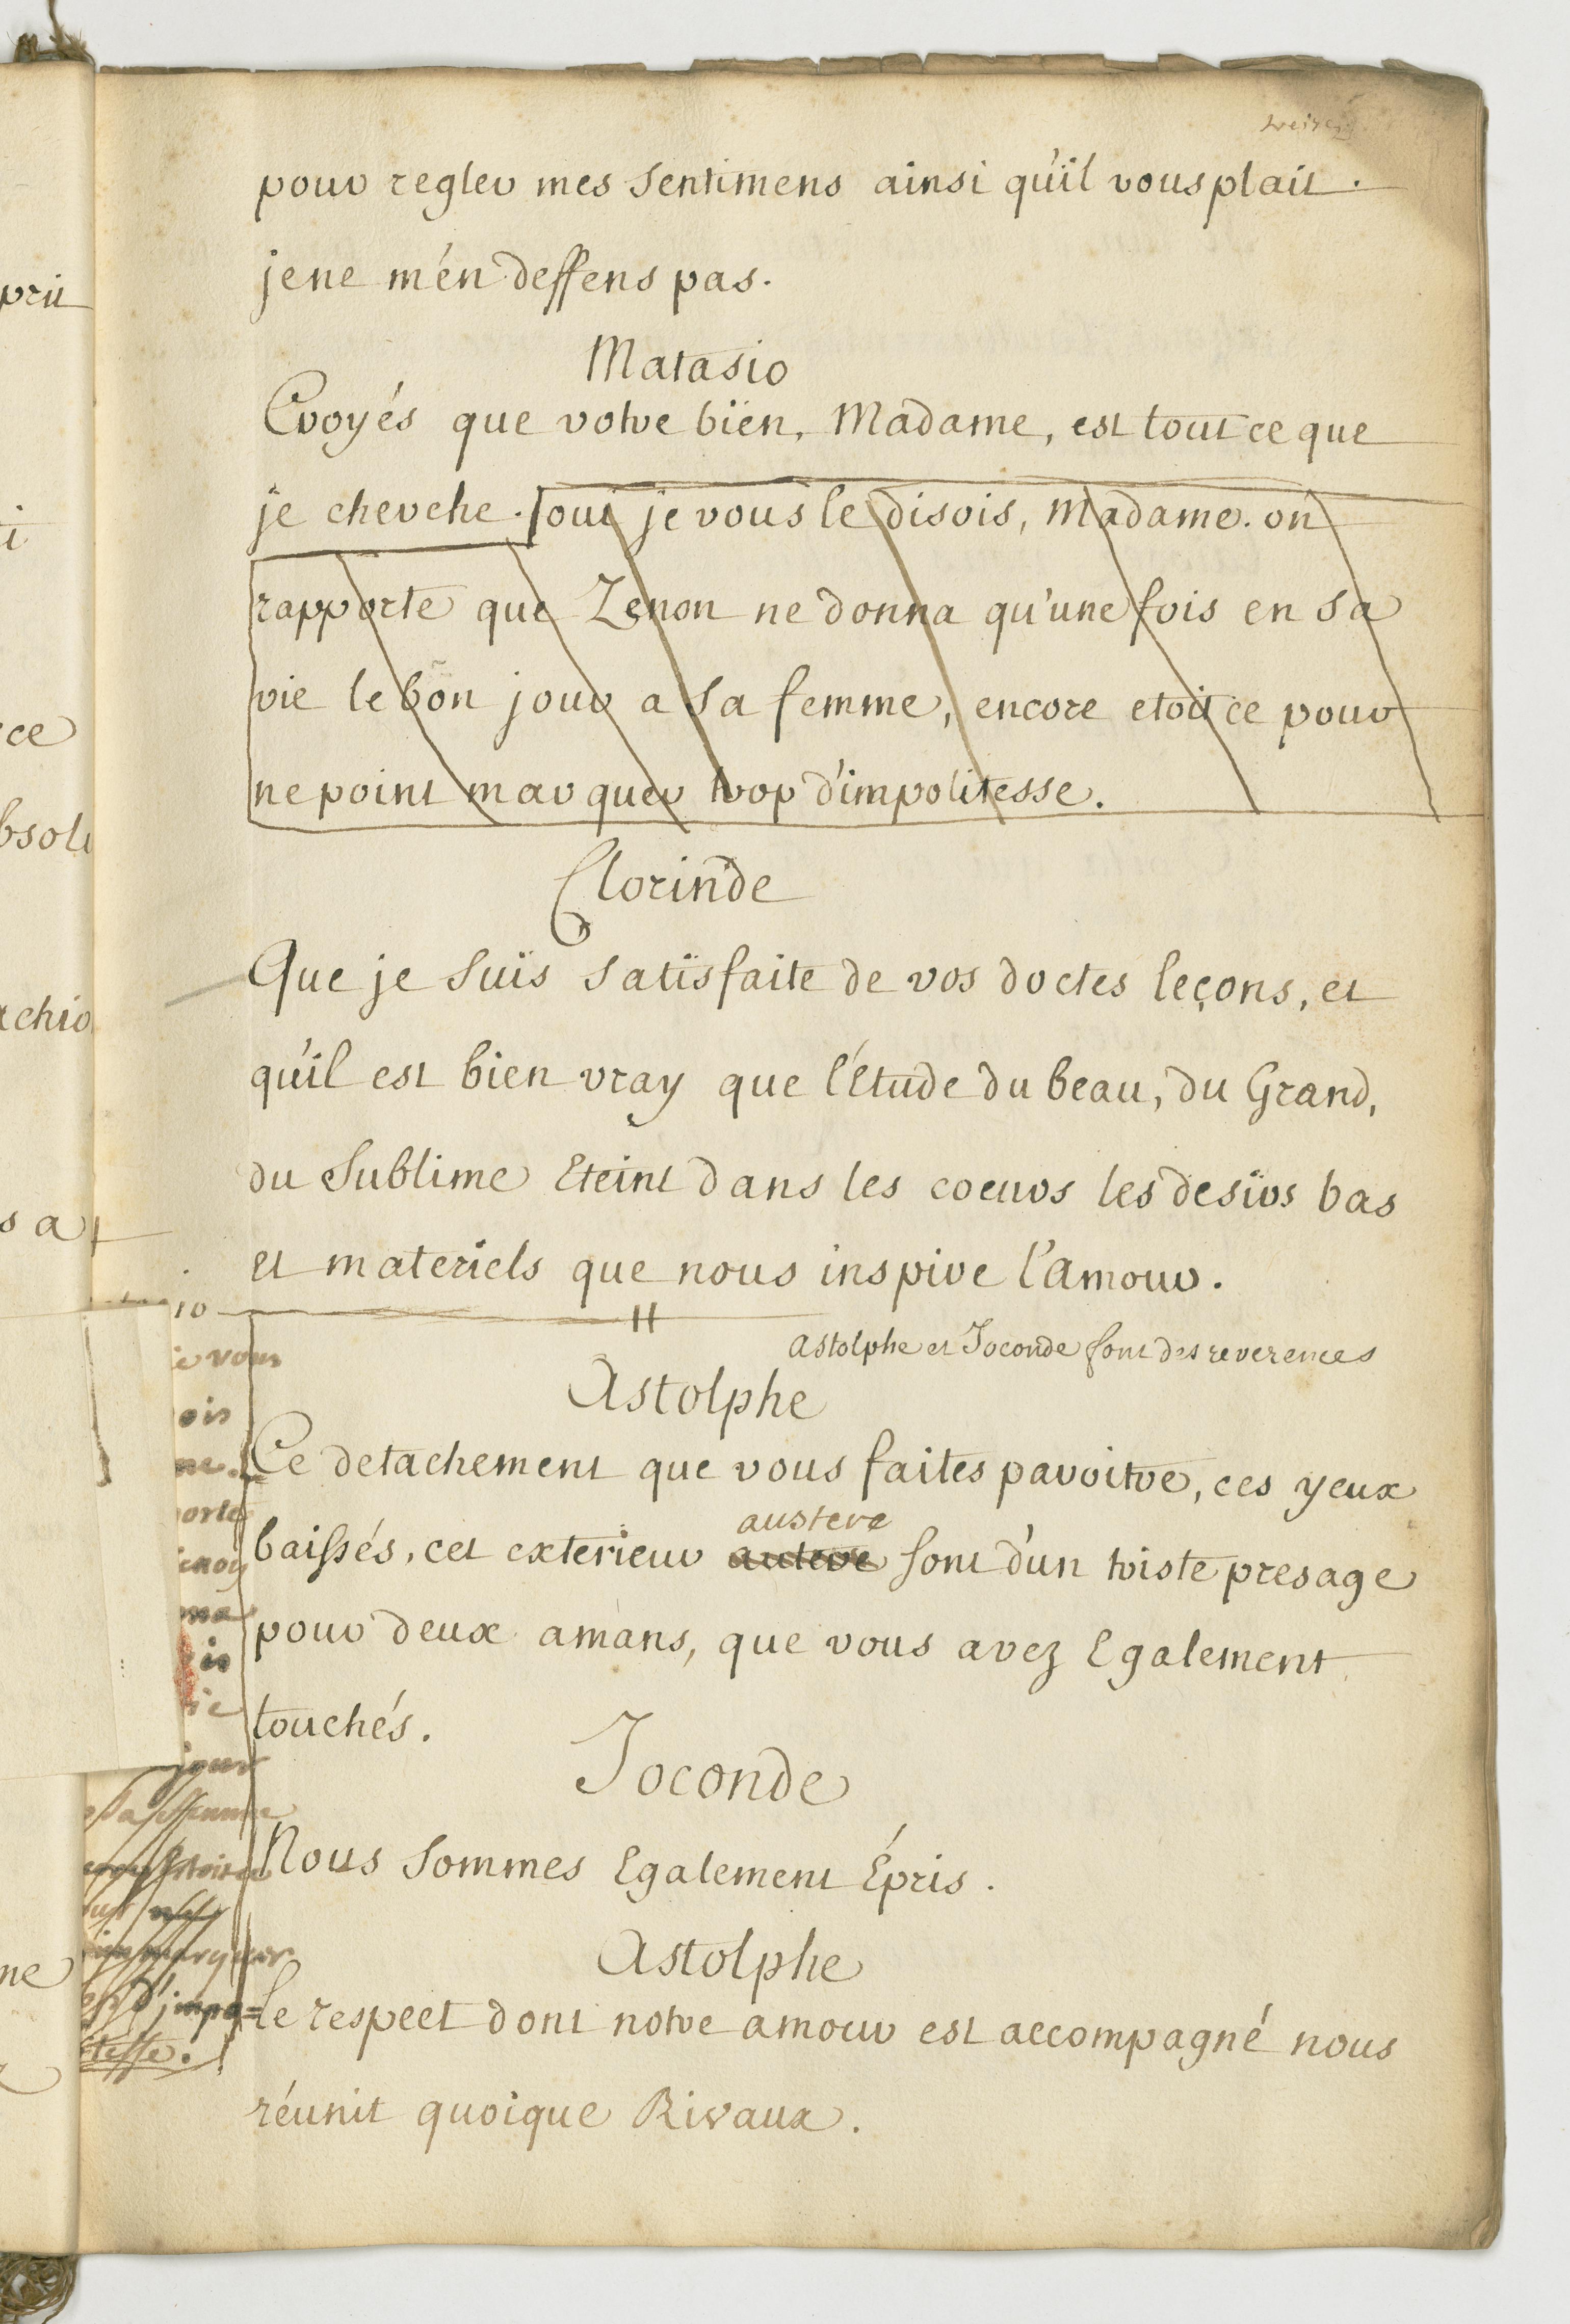 treize
pour regler mes sentimens ainsi qu'il vous plait.
je ne m'en deffens pas.
Matasio
Croyés que votre bien, Madame, est tout ce que
je cherche. oui je vous le disois, Madame. on
rapporte que Zenon ne donna qu'une fois en sa
vie le bon jour a sa femme, encore etoit ce pour
ne point marquer trop d'impolitesse.
Clorinde
Que je suis satisfaite de vos doctes leçons, et
qu'il est bien vray que l'étude du beau, du Grand,
du Sublime Eteint dans les coeurs les desirs bas
et materiels que nous inspire l'amour.
Astolphe et Joconde font des reverences
Astolphe
Ce detachement que vous faites paroitre, ces yeux
austere
baissés, cet exterieur autere sont d'un triste presage
pour deux amans, que vous avez Egalement
touchés.
Joconde
Nous sommes Egalement Épris.
Astolphe
le respect dont notre amour est accompagné nous
réunit quoique Rivaux.